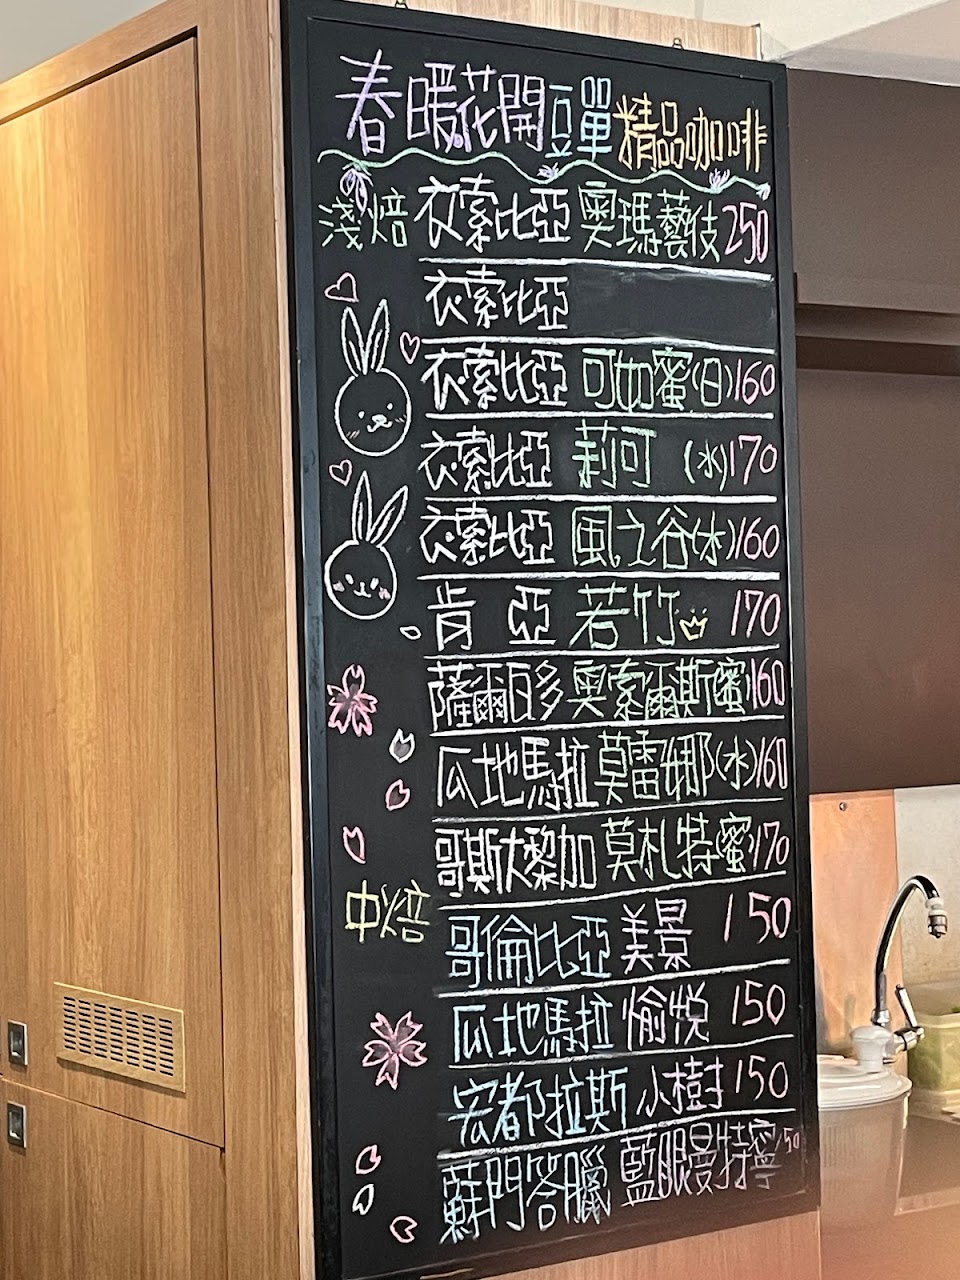 春暖花開豆單精品咖啡
淺焙 衣索比亞 奧瑪藝伎 250
衣索比亞
衣索比亞 可如蜜(日)160
衣索比亞 莉可 (水)170
衣索比亞 風之谷(水)160
肯亞 若竹 170
薩爾瓦多 奧索爾斯蜜160
瓜地馬拉 莫雷娜(水)160
哥斯大黎加 莫札特蜜170
中焙 哥倫比亞 美景 150
瓜地馬拉 愉悅 150
宏都拉斯 小樹 150
蘇門答臘 藍眼曼特寧150